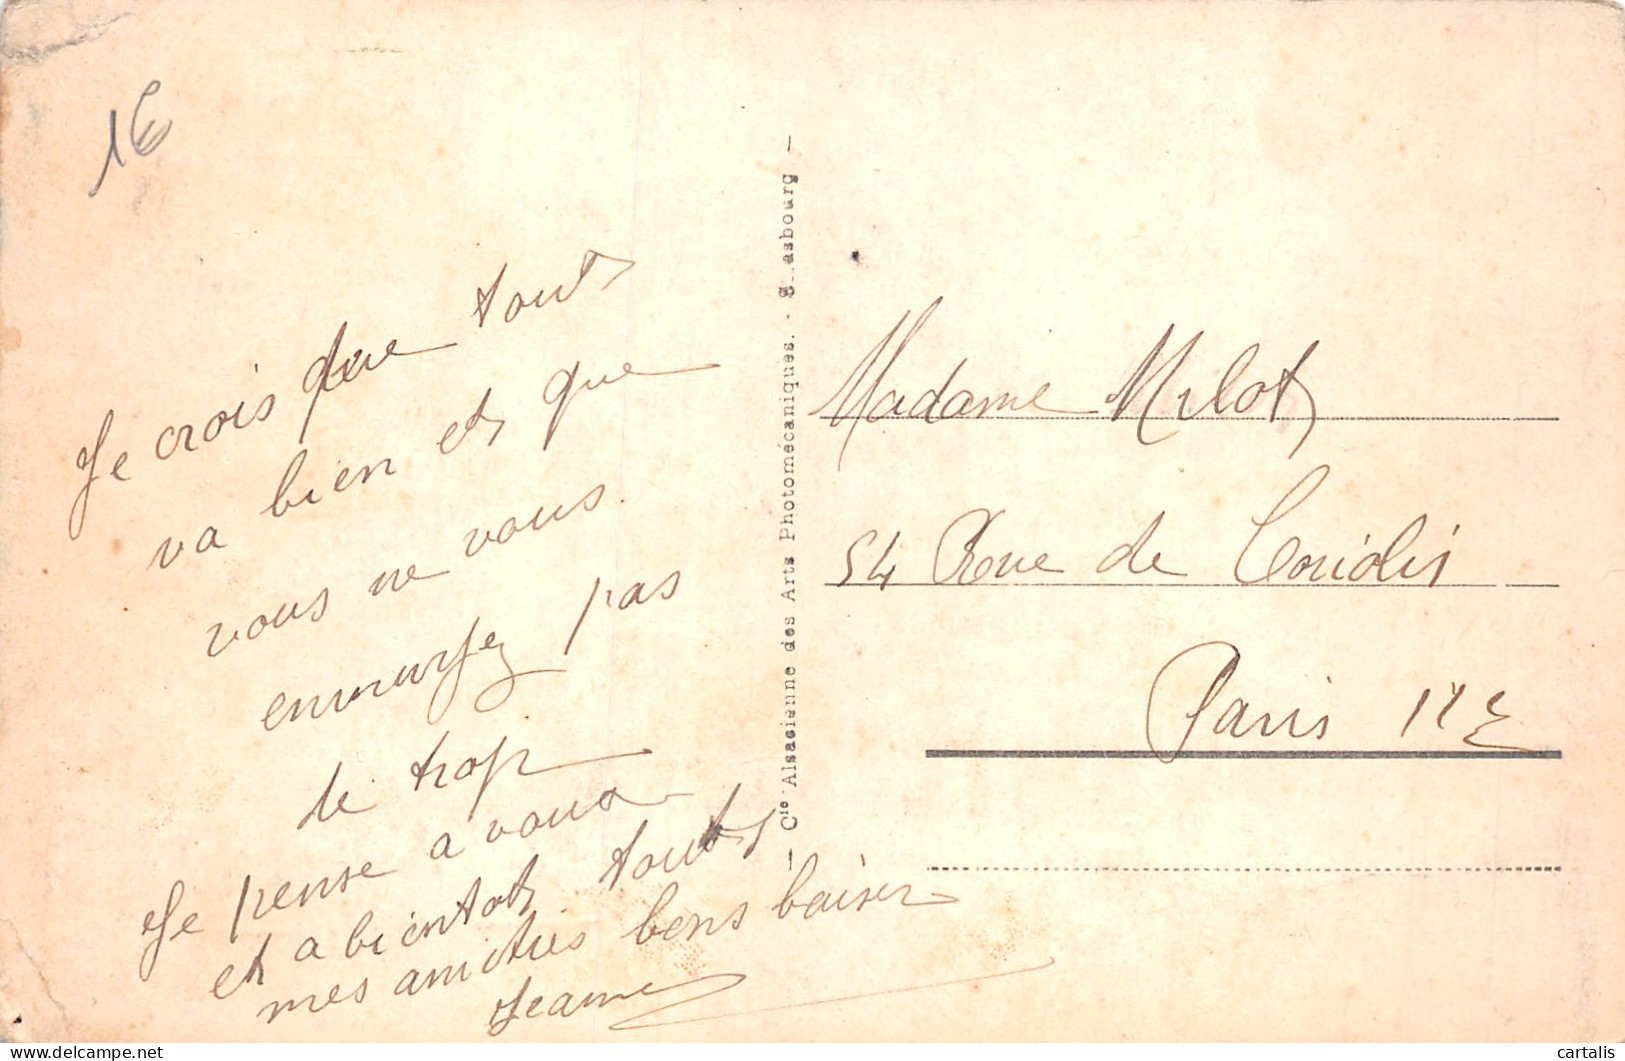 1€
Je crois que tout
va bien et que
vous ne vous
ennuyez pas
de trop
Je pense a vous
et a bientot touts
mes amitiés bons baiser
Jeanne
— Cie Alsacienne des Arts Photomécaniques. - Strasbourg —
Madame Milot
54 Rue de Coriolis
Paris 12e
cartalis